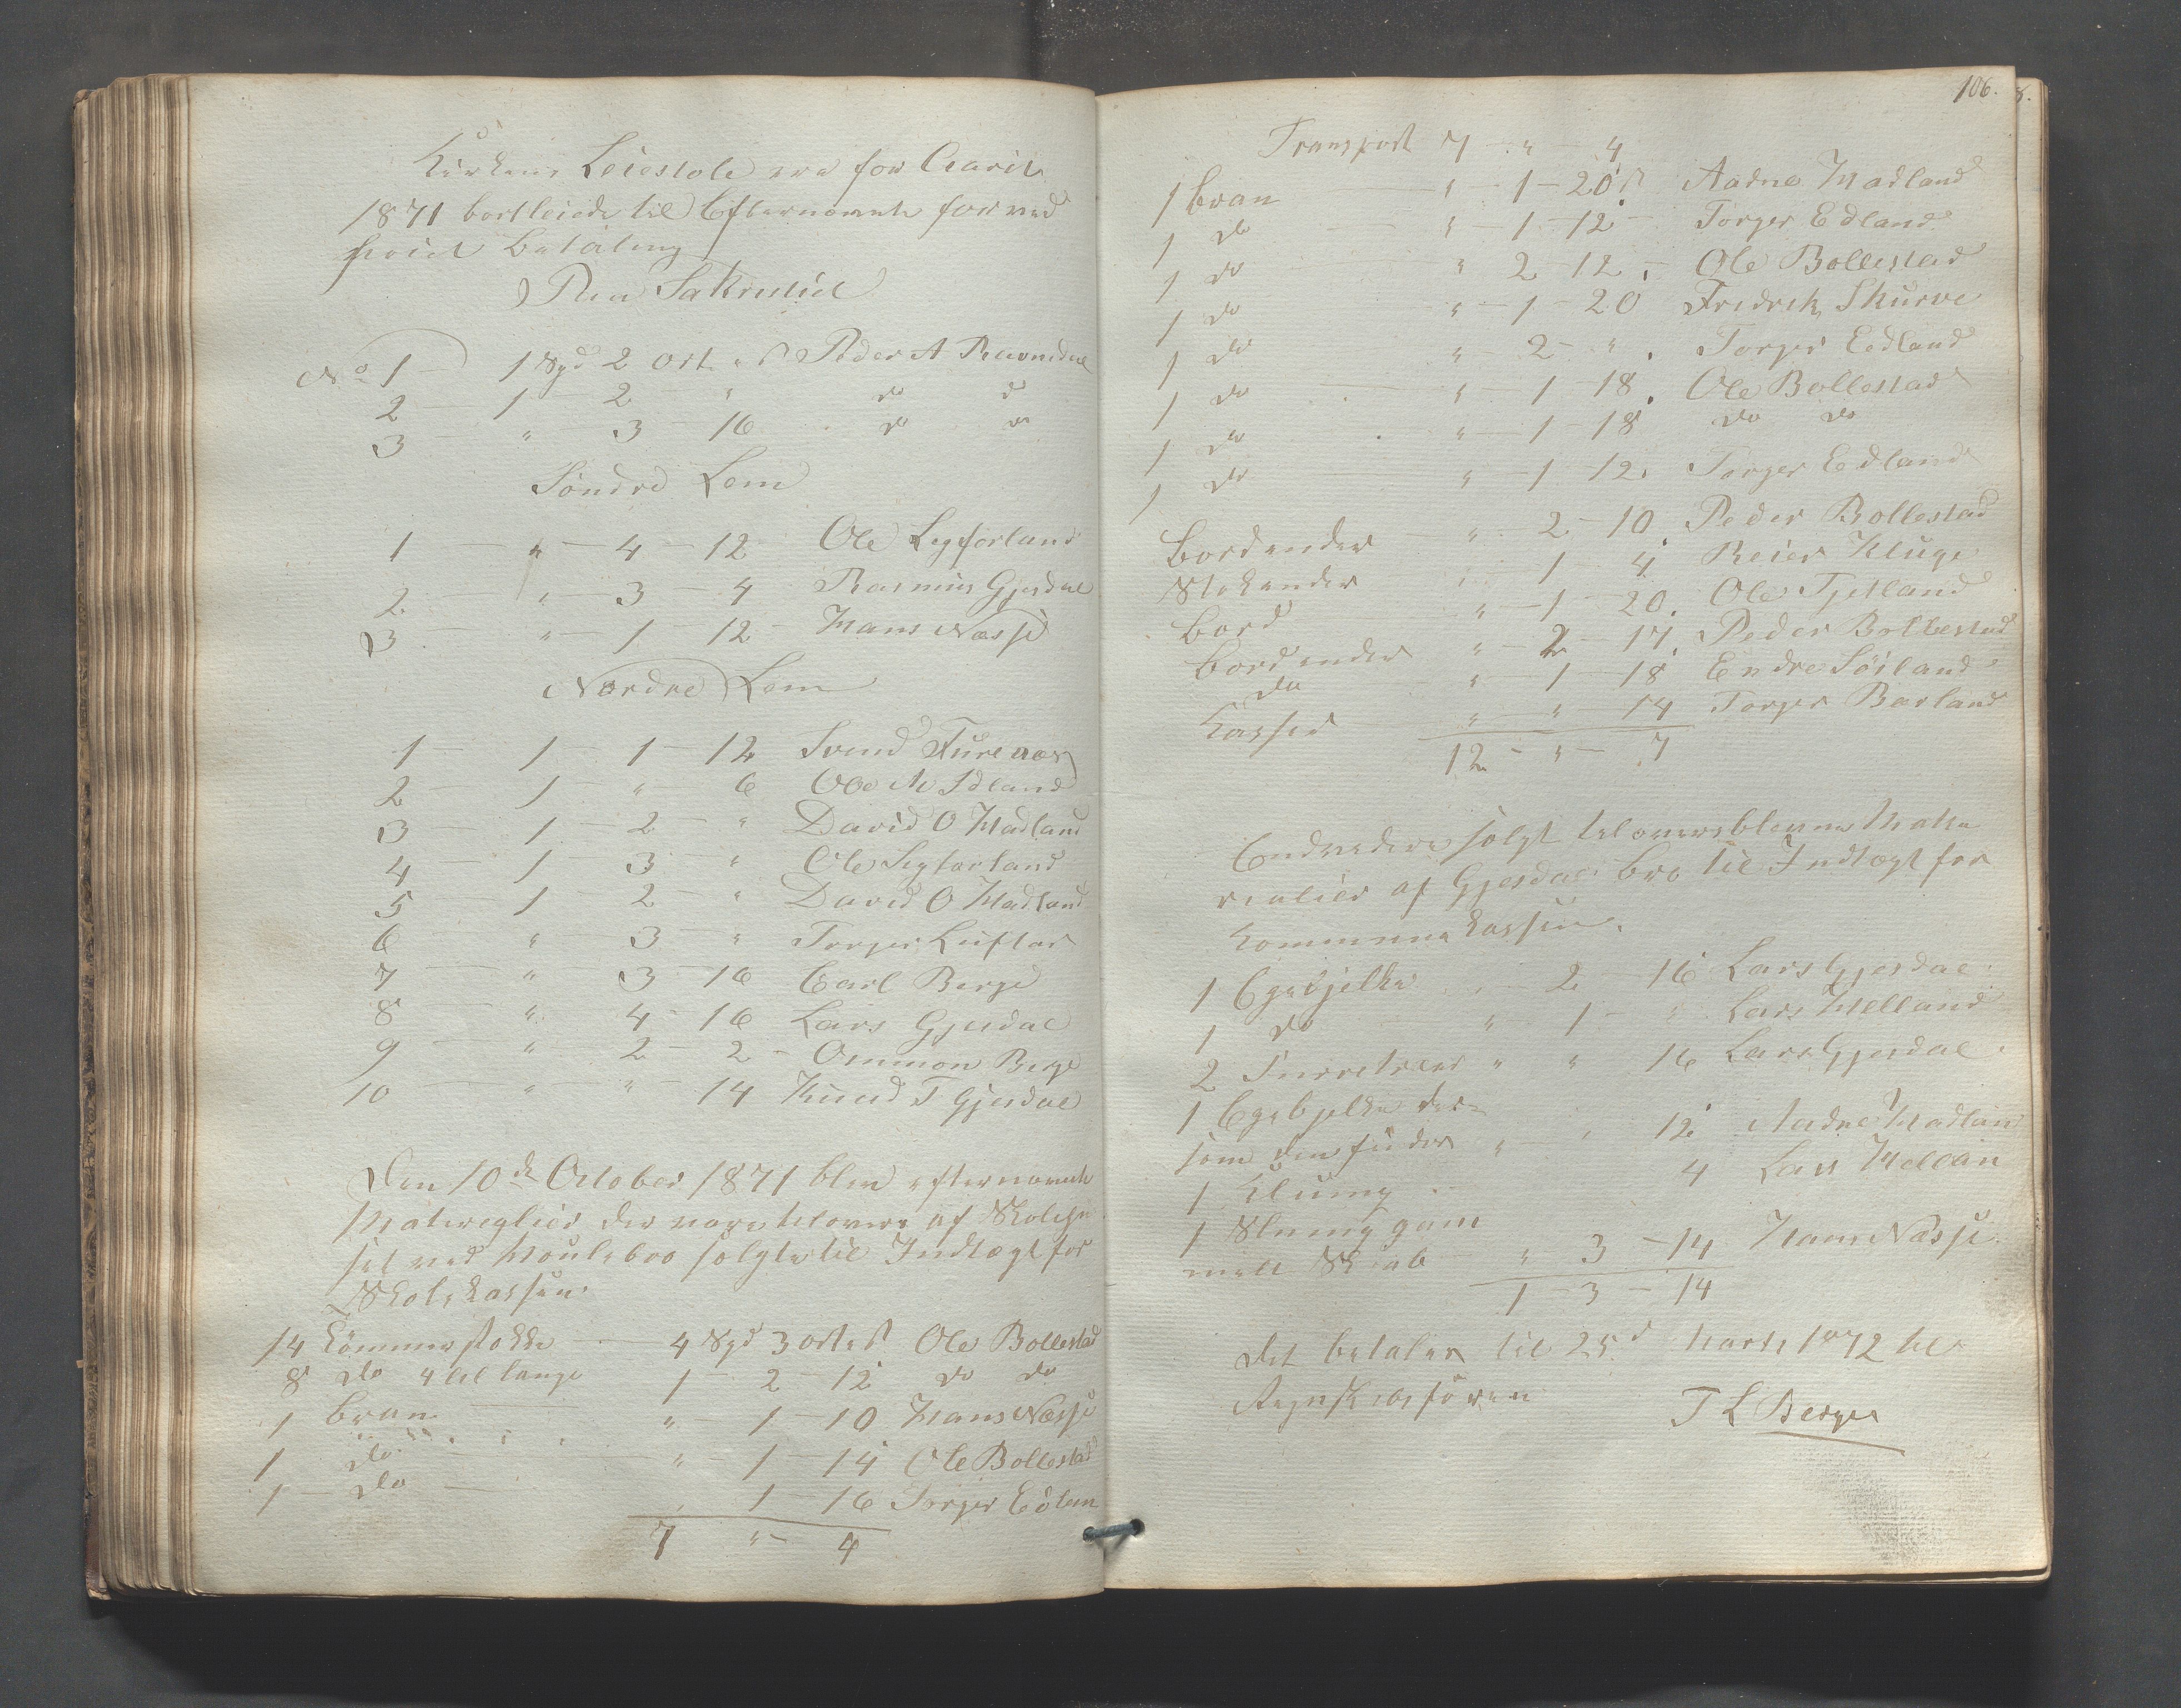 Kirkens Leiestole ere for Aaret
1871 bortleiede til Efternævnte for ved
føiet Betaling
Paa Sakristiet
No 1 - 1 Spd 2 ort " ß Peder A Ravndal
2 - 1 - 2 - " do do
3 - " - 3 - 16 do do
Söndre Lem
1 - " - 4 - 12 Ole Segforland
2 - " - 3 - 4 Rasmus Gjesdal
3 - " - 1 - 12 - Hans Næsse
Nordre Lem
1 - 1 - 1 - 12 Svend Furenæs
2 - 1 - " - 6 Ole M Idland
3 - 1 - 2 - " David O Madland
4 - 1 - 3 - " Ole Segforland
5 - 1 - 2 - " David O Madland
6 " - 3 - " Torger Luftar
7 - " - 3 - 16 Carl Berge
8 - " - 4 - 16 Lars Gjesdal
9 - " - 2 - 2 - Ommon Berge
10 - " - " - 14 Knud T Gjesdal
Den 10de October 1871 blev efternævnte
Matereglier der vare tilovers af Skolehu
set ved solgte til Indtægt for
Skolekassen.
14 Tömmerstokke - 4 Spd 3 ort " ß Ole Bollestad
8 do 4 al lange 1 - 2 - 12 do do
1 Bran - " - 1 - 10 Hans Næsse
1 do " - 1 - 14 Ole Bollestad
1 - do - 1 - 16 Torger Edlan
7 " - 4
106.
Transport 7 - " - 4
1 bran - " - 1 - 20 ß Aadne Madland
1 do - " - 1 - 12 - Torger Edland
1 do " 2 - 12 - Ole Bollestad
1 do " - 1 - 20 Fredrik Skurve
1 do " 2 - " . Torger Eedland
1 do " - 1 - 18. Ole Bollestad
1 do " - 1 - 18 do do
1 do " - 1 12. Torger Edland
Bordender " - 2 - 10. Peder Bollestad
Stokender " - 1 - 4 Reier Kluge
Bord " - 1 - 20. Ole Tjetland
Bordender " - 2 - 17. Peder Bollestad
do " - 1 - 18 Endre Söiland
Kasser " " 14 Torger Barland
12 - " - 7
Endvedere solgt tiloversblevne Mate
rialier af Gjesdal bro til Indtægt for
Kommunekassen.
1 Egebjelke " 2 16 Lars Gjesdal
1 do " - 1 - " Lars Melland
2 Furretræer " " 16 Lars Gjesdal.
1 Egebjelke der=
som den finder " - " 12 Aadne Madlan
1 4 Lars Mellan
1 gam
mell Skab " 3 - 14 Hans Næsse.
1 - 3 - 14
Det betales til 25d Marts 1872 til
Regnskabsføreren
T L Berge